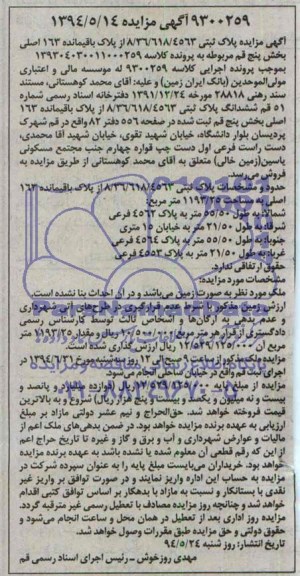 ۹۳۰۰۲۵۹ آگهی مزایده ۱۳۹۴/۵/۱۴
آگهی مزایده پلاک ثبتی ۸/۳۶/۶۱۸/۴۵۶۳ از پلاک باقیمانده ۱۶۳ اصلی
بخش پنج قم مربوطه به پرونده کلاسه ۱۳۹۳۰۴۰۳۰۰۱۱۰۰۰۲۵۹
بموجب پرونده اجرایی کلاسه ۹۳۰۰۲۵۹ له موسسه مالی و اعتباری
مولی‌الموحدین (بانک ایران زمین) و علیه: آقای محمد کوهستانی، مستند
سند رهنی ۲۸۸۱۸ مورخه ۱۳۹۱/۱۲/۲۴ دفترخانه اسناد رسمی شماره
۵۱ قم ششدانگ پلاک ثبتی ۸/۳۶/۶۱۸/۴۵۶۳ از پلاک باقیمانده ۱۶۳
اصلی بخش پنج قم ثبت شده در صفحه ۵۵۶ دفتر ۸۲ واقع در قم شهرک
پردیسان بلوار دانشگاه، خیابان شهید تقوی، خیابان شهید آقا محمدی،
دست راست فرعی اول دست چپ قواره چهارم جنب مجتمع مسکونی
یاسین (زمین خالی) متعلق به آقای محمد کوهستانی از طریق مزایده به
فروش می‌رسد.
حدود و مشخصات پلاک ثبتی ۸/۳۶/۶۱۸/۴۵۶۳ از پلاک باقیمانده ۱۶۳
اصلی به مساحت ۱۱۹۳/۲۵ متر مربع:
شمالا: به طول ۵۵/۵۰ متر به پلاک ۴۵۶۲ فرعی
شرقا: به طول ۲۱/۵۰ متر به خیابان ۱۵ متری
جنوبا: به طول ۵۵/۵۰ متر به پلاک ۴۵۶۴ فرعی
غربا: به طول ۲۱/۵۰ متر به پلاک ۴۵۵۳ فرعی
حقوق ارتفاقی ندارد.
مشخصات مورد مزایده:
ملک مورد نظر به صورت زمین می‌باشد و در آن احداث بنا نشده است.
ارزش زمین مذکور با فرض عدم قرارگیری در طرح‌های آتی شهرداری
و عدم بدهی به ارگان‌ها و اشخاص ثالث توسط کارشناس رسمی
دادگستری از قرار هر متر مربع ریال و بمقدار ۱۱۹۳/۲۵ متر
مربع ریال ارزش گذاری شده است.
مزایده ملک مذکور از ساعت ۹ صبح الی ۱۲ روز سه‌شنبه مورخ ۱۳۹۴/۶/۳۱ در
اجرای ثبت قم واقع در خیابان ساحلی انجام می‌شود.
مزایده از مبلغ پایه ریال
شروع و به بالاترین
قیمت فروخته خواهد شد. حق‌الحراج و نیم عشر دولتی مازاد بر مبلغ
ارزیابی به عهده برنده مزایده خواهد بود. در ضمن بدهی‌های ملک اعم از
مالیات و عوارض شهرداری و آب و برق و گاز و غیره تا تاریخ حراج اعم
از این که رقم قطعی آن معلوم شده یا نشده باشد به عهده برنده مزایده
خواهد بود. خریداران می‌بایست مبلغ پایه را به عنوان سپرده شرکت در
مزایده به حساب این اداره واریز نمایند و در صورت توافق بر واریز غیر
نقدی با بستانکار و نسبت به مازاد با بدهکار بر اساس توافق کتبی اقدام
خواهد شد و چنانچه روز مزایده مصادف با تعطیل رسمی غیر مترقبه گردد.
مزایده روز اداری بعد از تعطیل در همان محل و ساعت انجام می‌شود و
حقوق دولتی و حق مزایده طبق مقررات وصول خواهد شد.
تاریخ انتشار: روز شنبه ۹۴/۵/۲۴
مهدی روزخوش - رئیس اجرای اسناد رسمی قم